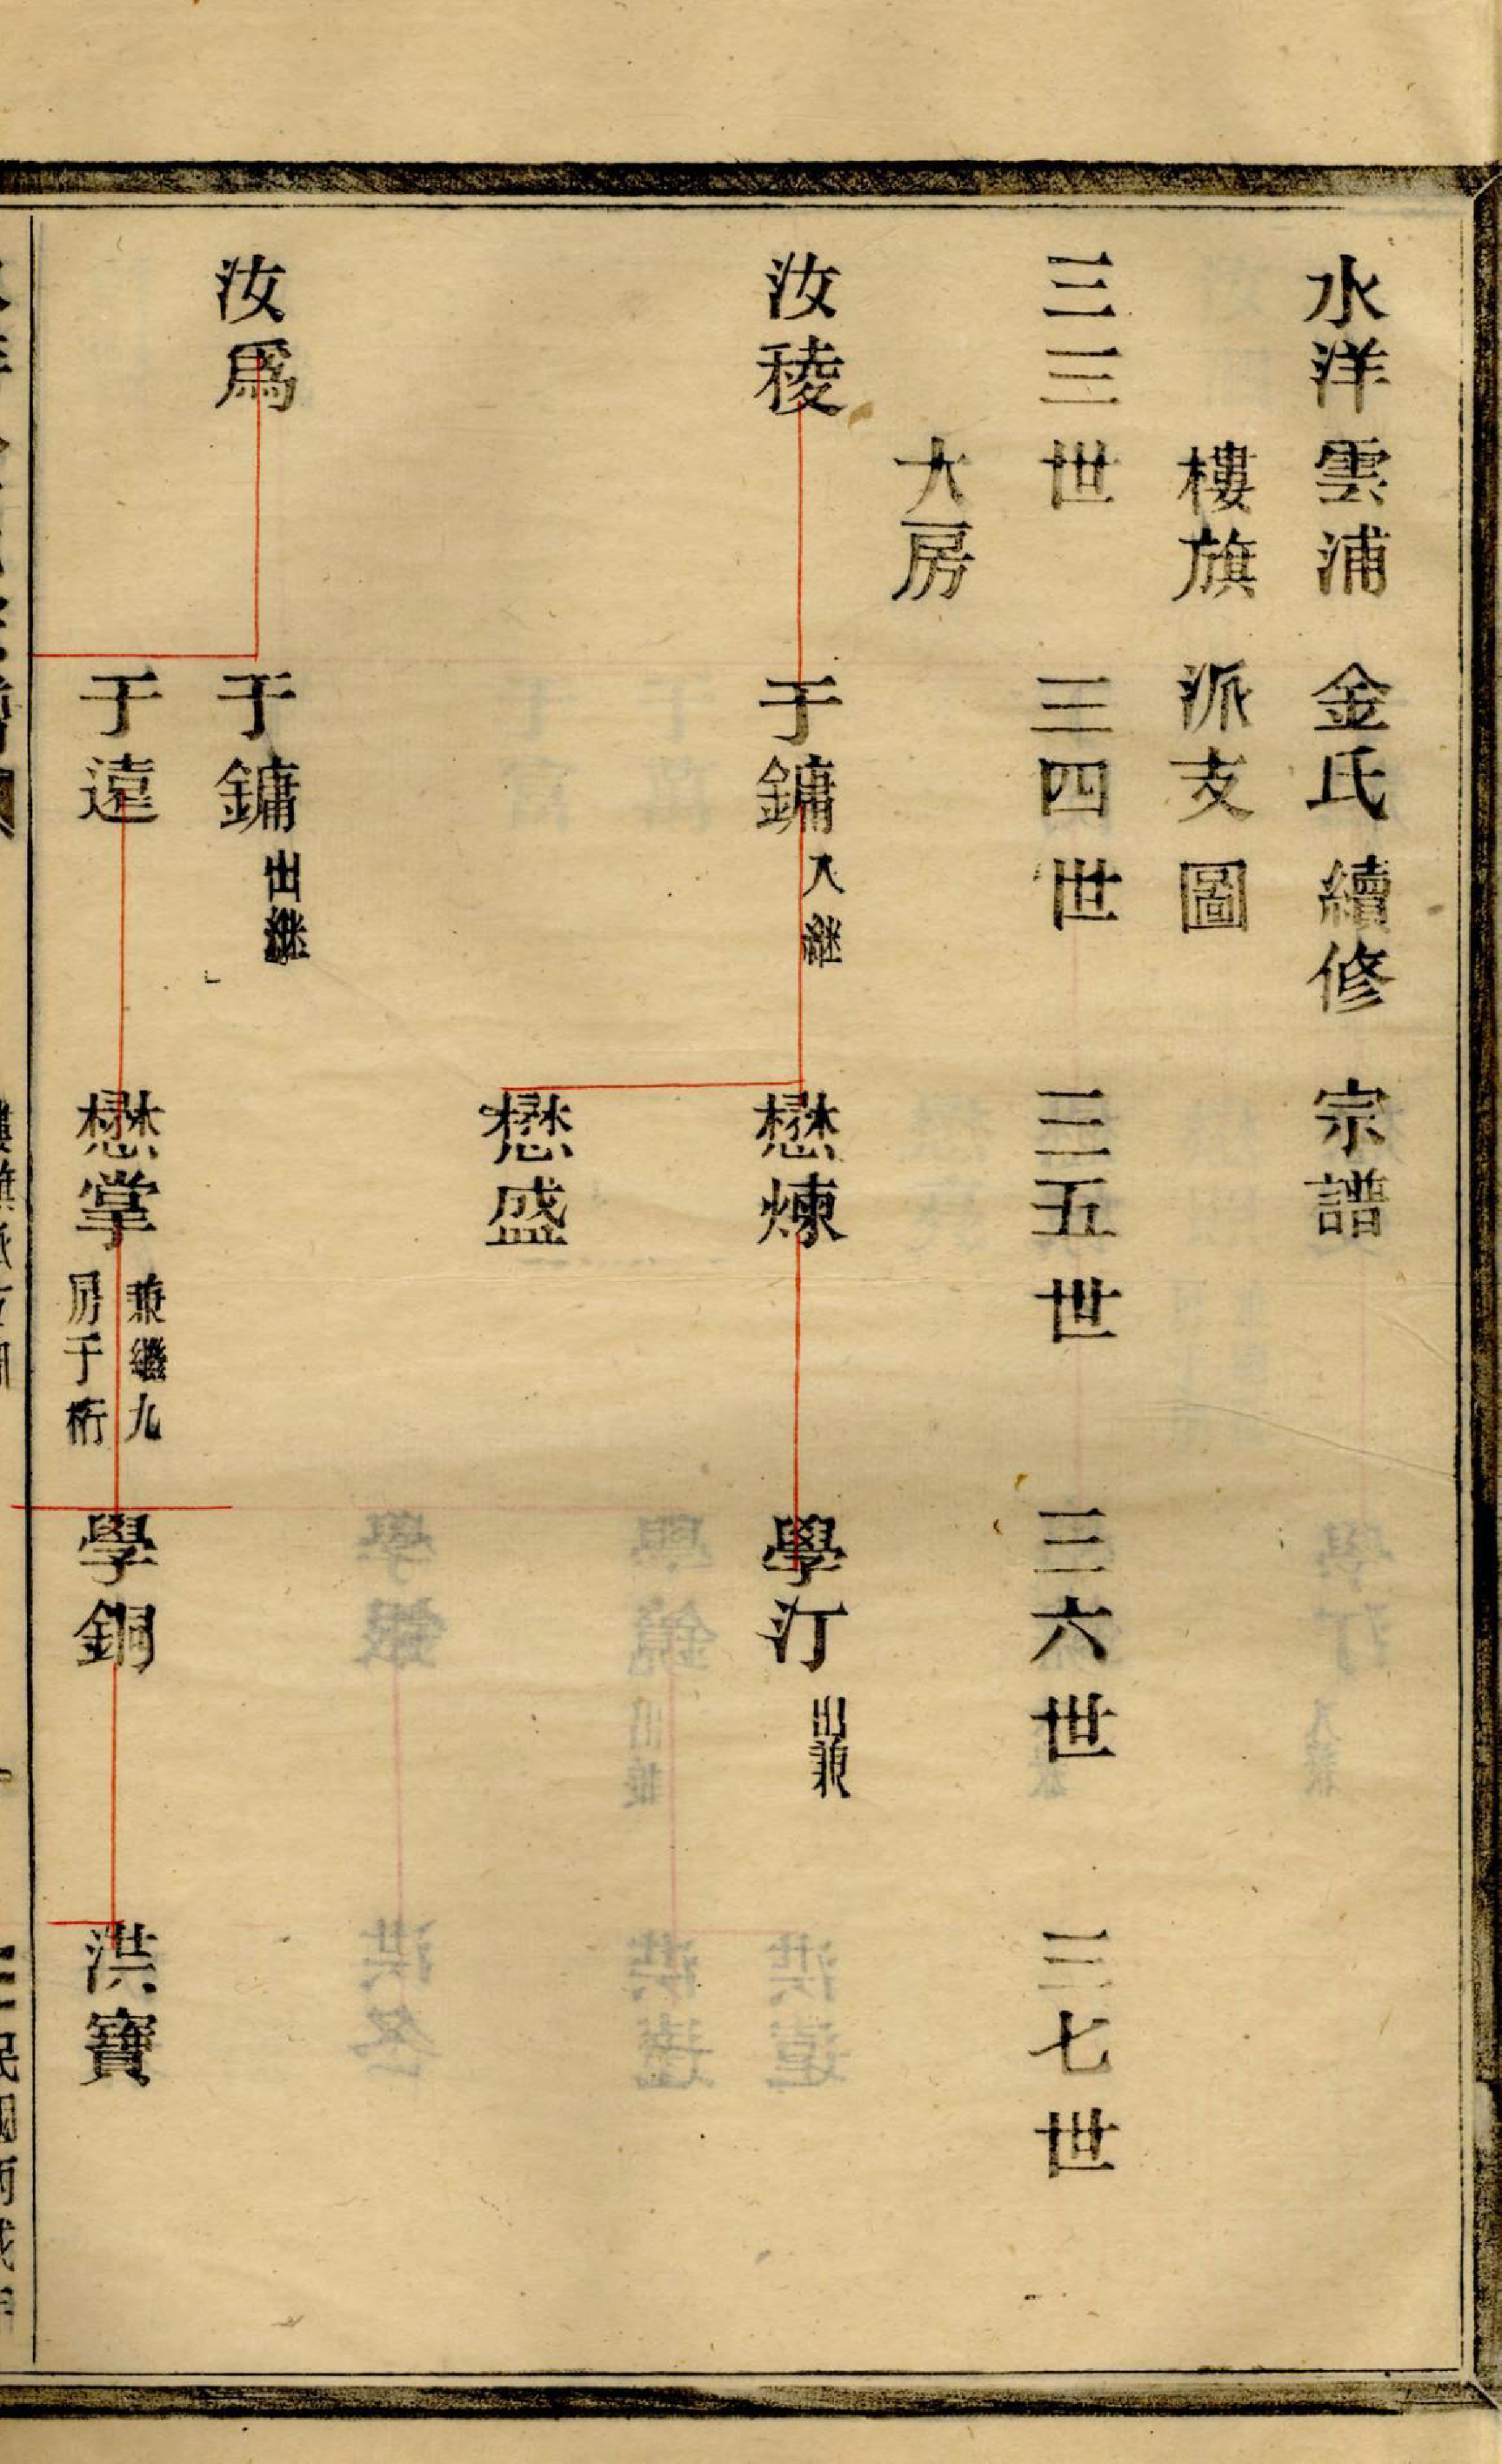 水洋雲浦金氏續修宗譜
樓旗派支圖
三三世 三四世 三五世 三六世 三七世
大房
汝稜 于鏞 入継 懋煉 學汀 出兼
懋盛
汝爲 于鏞 出継
于遠 懋掌 兼繼九房于桁 學銅 洪寶